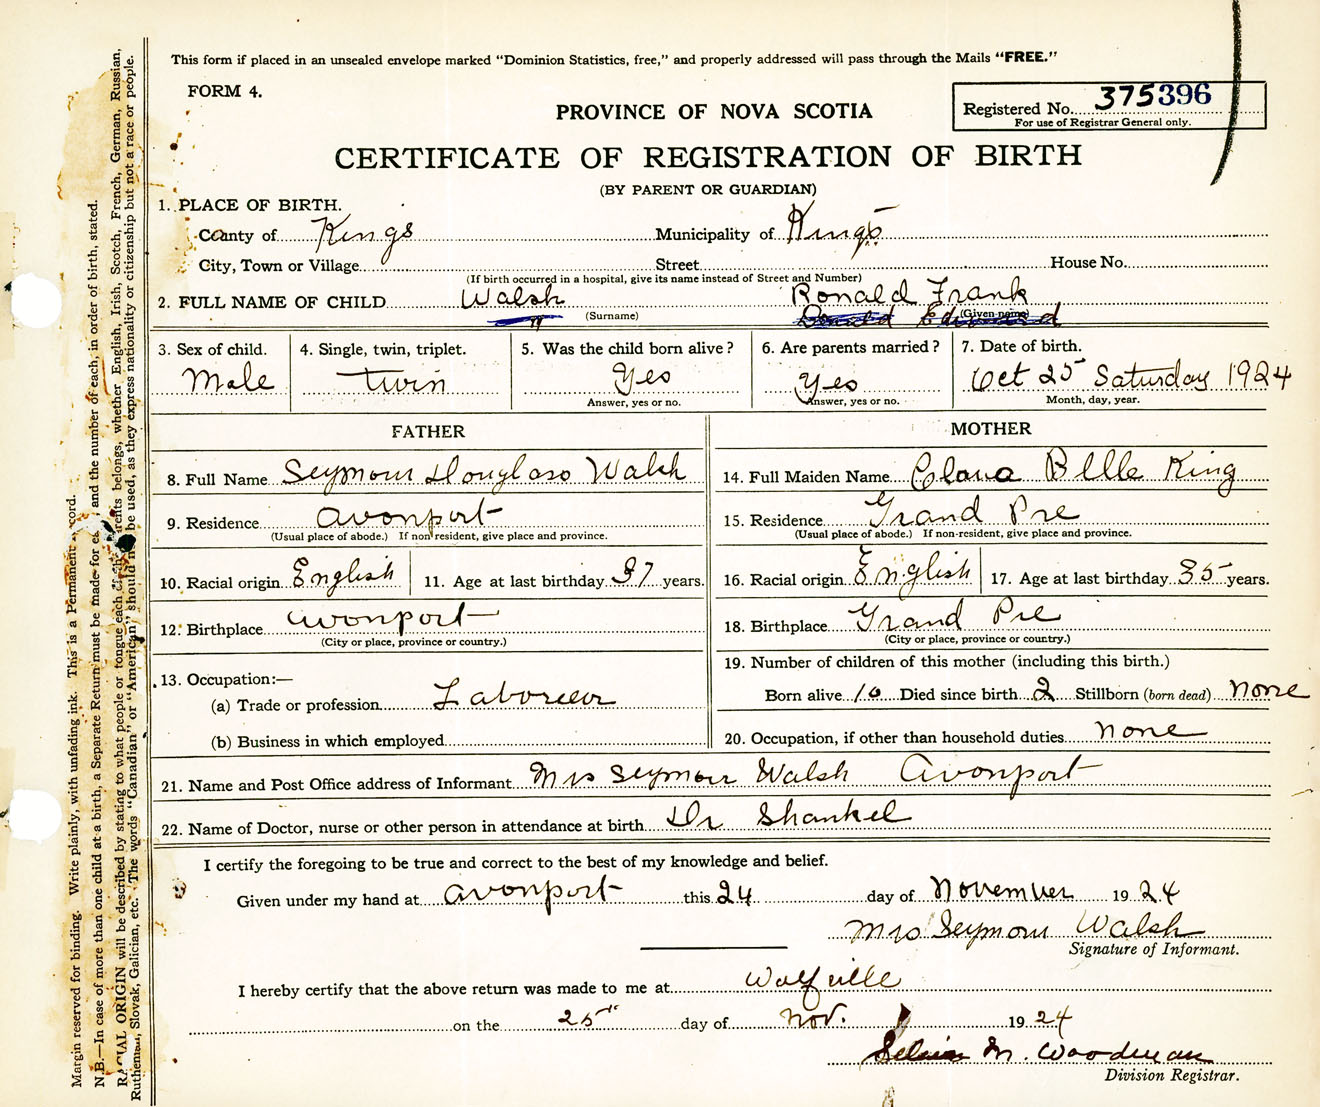 This form if placed in an unsealed envelope marked “Dominion Statistics, free,” and properly addressed will pass through the Mails “FREE.”
FORM 4.
PROVINCE OF NOVA SCOTIA
Registered No. 375396
For use of Registrar General only.
CERTIFICATE OF REGISTRATION OF BIRTH
(BY PARENT OR GUARDIAN)
1. PLACE OF BIRTH.
County of Kings Municipality of Kings
City, Town or Village Street House No.
(If birth occurred in a hospital, give its name instead of Street and Number)
2. FULL NAME OF CHILD Walsh Ronald Frank
(Surname) Donald Edward (Given name)
3. Sex of child. 4. Single, twin, triplet. 5. Was the child born alive? 6. Are parents married? 7. Date of birth.
Male twin Yes Yes Oct 25 Saturday 1924
Answer, yes or no. Answer, yes or no. Month, day, year.
FATHER MOTHER
8. Full Name Seymour Douglass Walsh 14. Full Maiden Name Clara Blle King
9. Residence Avonport 15. Residence Grand Pre
(Usual place of abode.) If non resident, give place and province. (Usual place of abode.) If non-resident, give place and province.
10. Racial origin English 11. Age at last birthday 37 years. 16. Racial origin English 17. Age at last birthday 35 years.
12. Birthplace Avonport 18. Birthplace Grand Pre
(City or place, province or country.) (City or place, province or country.)
13. Occupation:— 19. Number of children of this mother (including this birth.)
(a) Trade or profession Laboreur Born alive 10 Died since birth 2 Stillborn (born dead) none
(b) Business in which employed 20. Occupation, if other than household duties none
21. Name and Post Office address of Informant Mrs Seymour Walsh Avonport
22. Name of Doctor, nurse or other person in attendance at birth Dr Shankel
I certify the foregoing to be true and correct to the best of my knowledge and belief.
Given under my hand at Avonport this 24 day of November 1924
Mrs Seymour Walsh
Signature of Informant.
I hereby certify that the above return was made to me at Wolfville
on the 25" day of Nov. 1924
M. Woodman
Division Registrar.
Margin reserved for binding. Write plainly, with unfading ink. This is a Permanent
N.B.—In case of more than one child at a birth, a Separate Return must be made for and the number of each, in order of birth, stated.
ORIGIN will be described by stating to what people or tongue each belongs, whether English, Irish, Scotch, French, German, Russian,
Slovak, Galician, etc. The words “Canadian” or “American” should be used, as they express nationality or citizenship but not a race or people.